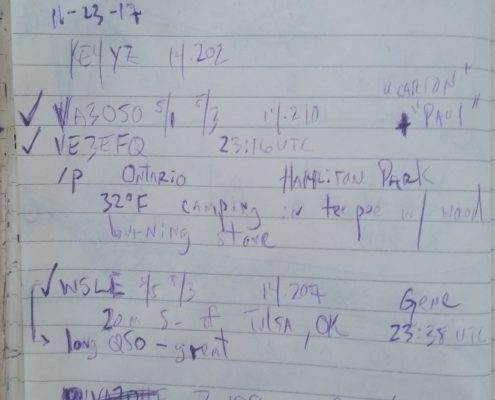 11-23-17
KE4YZ 14.202
✓ VA3OSO 5/1 5/3 14.210 "PAUL"
✓ VE3EFQ 23:16 UTC
/p ONTARIO HAMILTON PARK
32°F camping in teepee w/ wood
burning stove
✓ W5LE 5/5 5/3 14.207 Gene
20m S. of TULSA, OK 23:38 UTC
→ long QSO - great